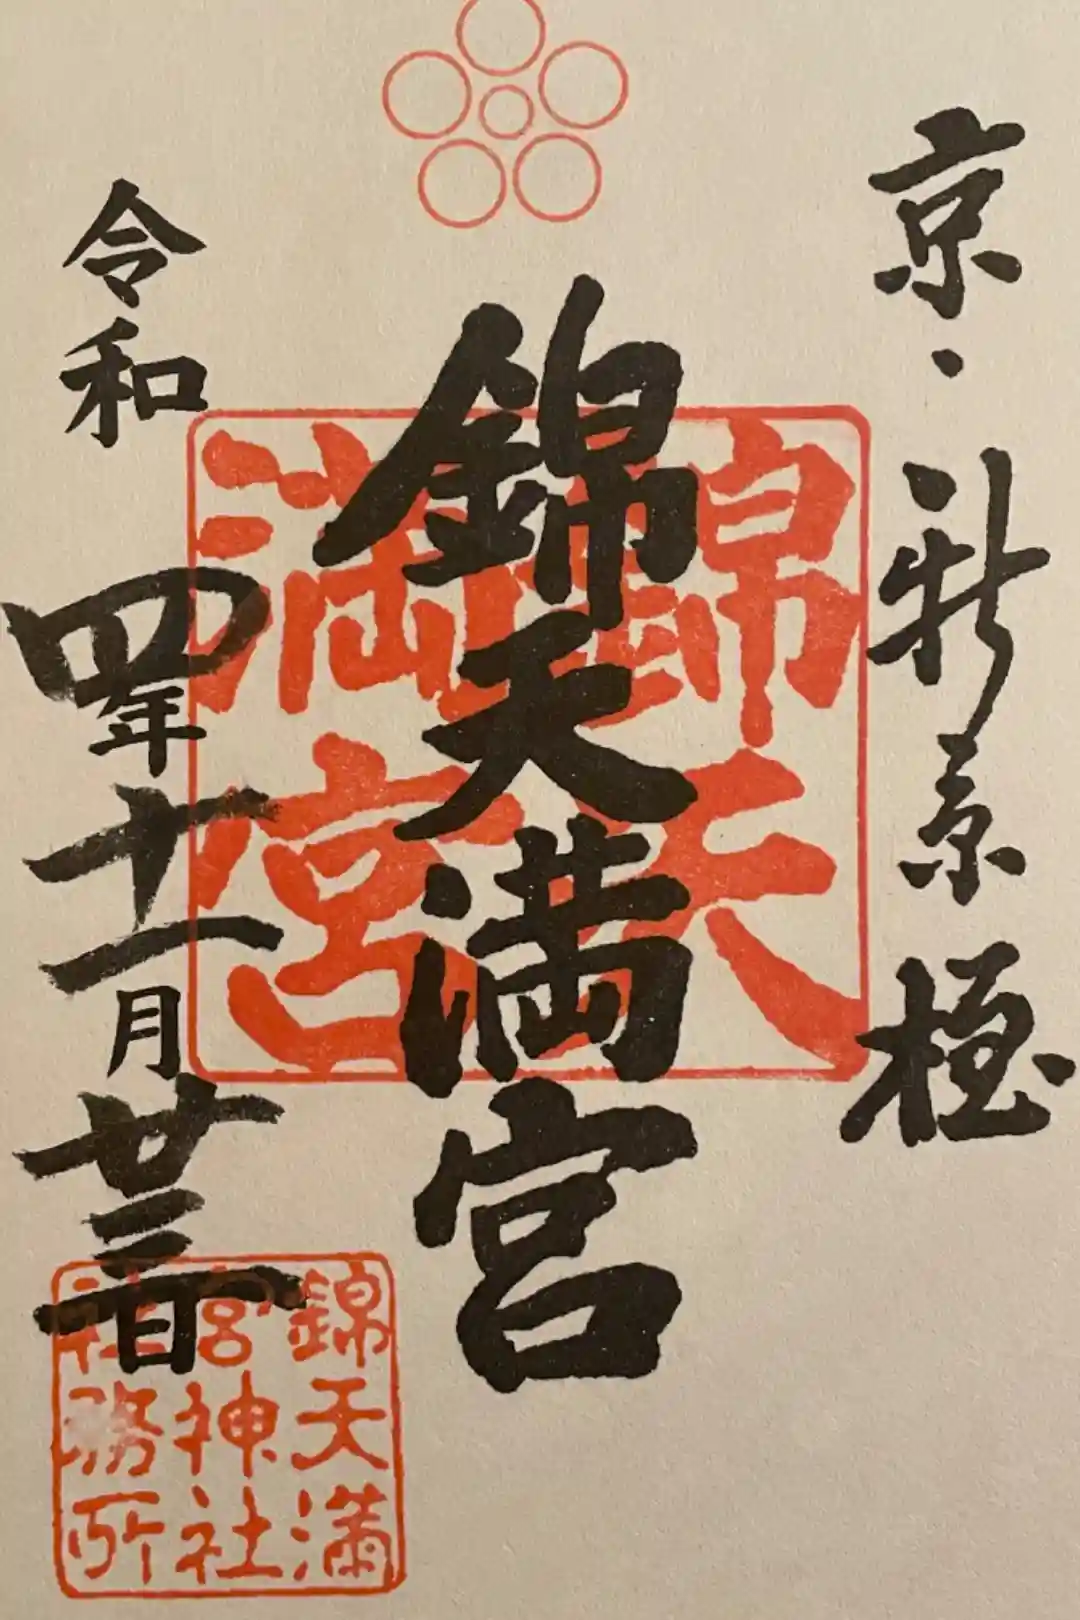 京・新京極
錦天満宮
令和四年十一月廿三日
錦天
満宮
錦天満
宮神社
社務所